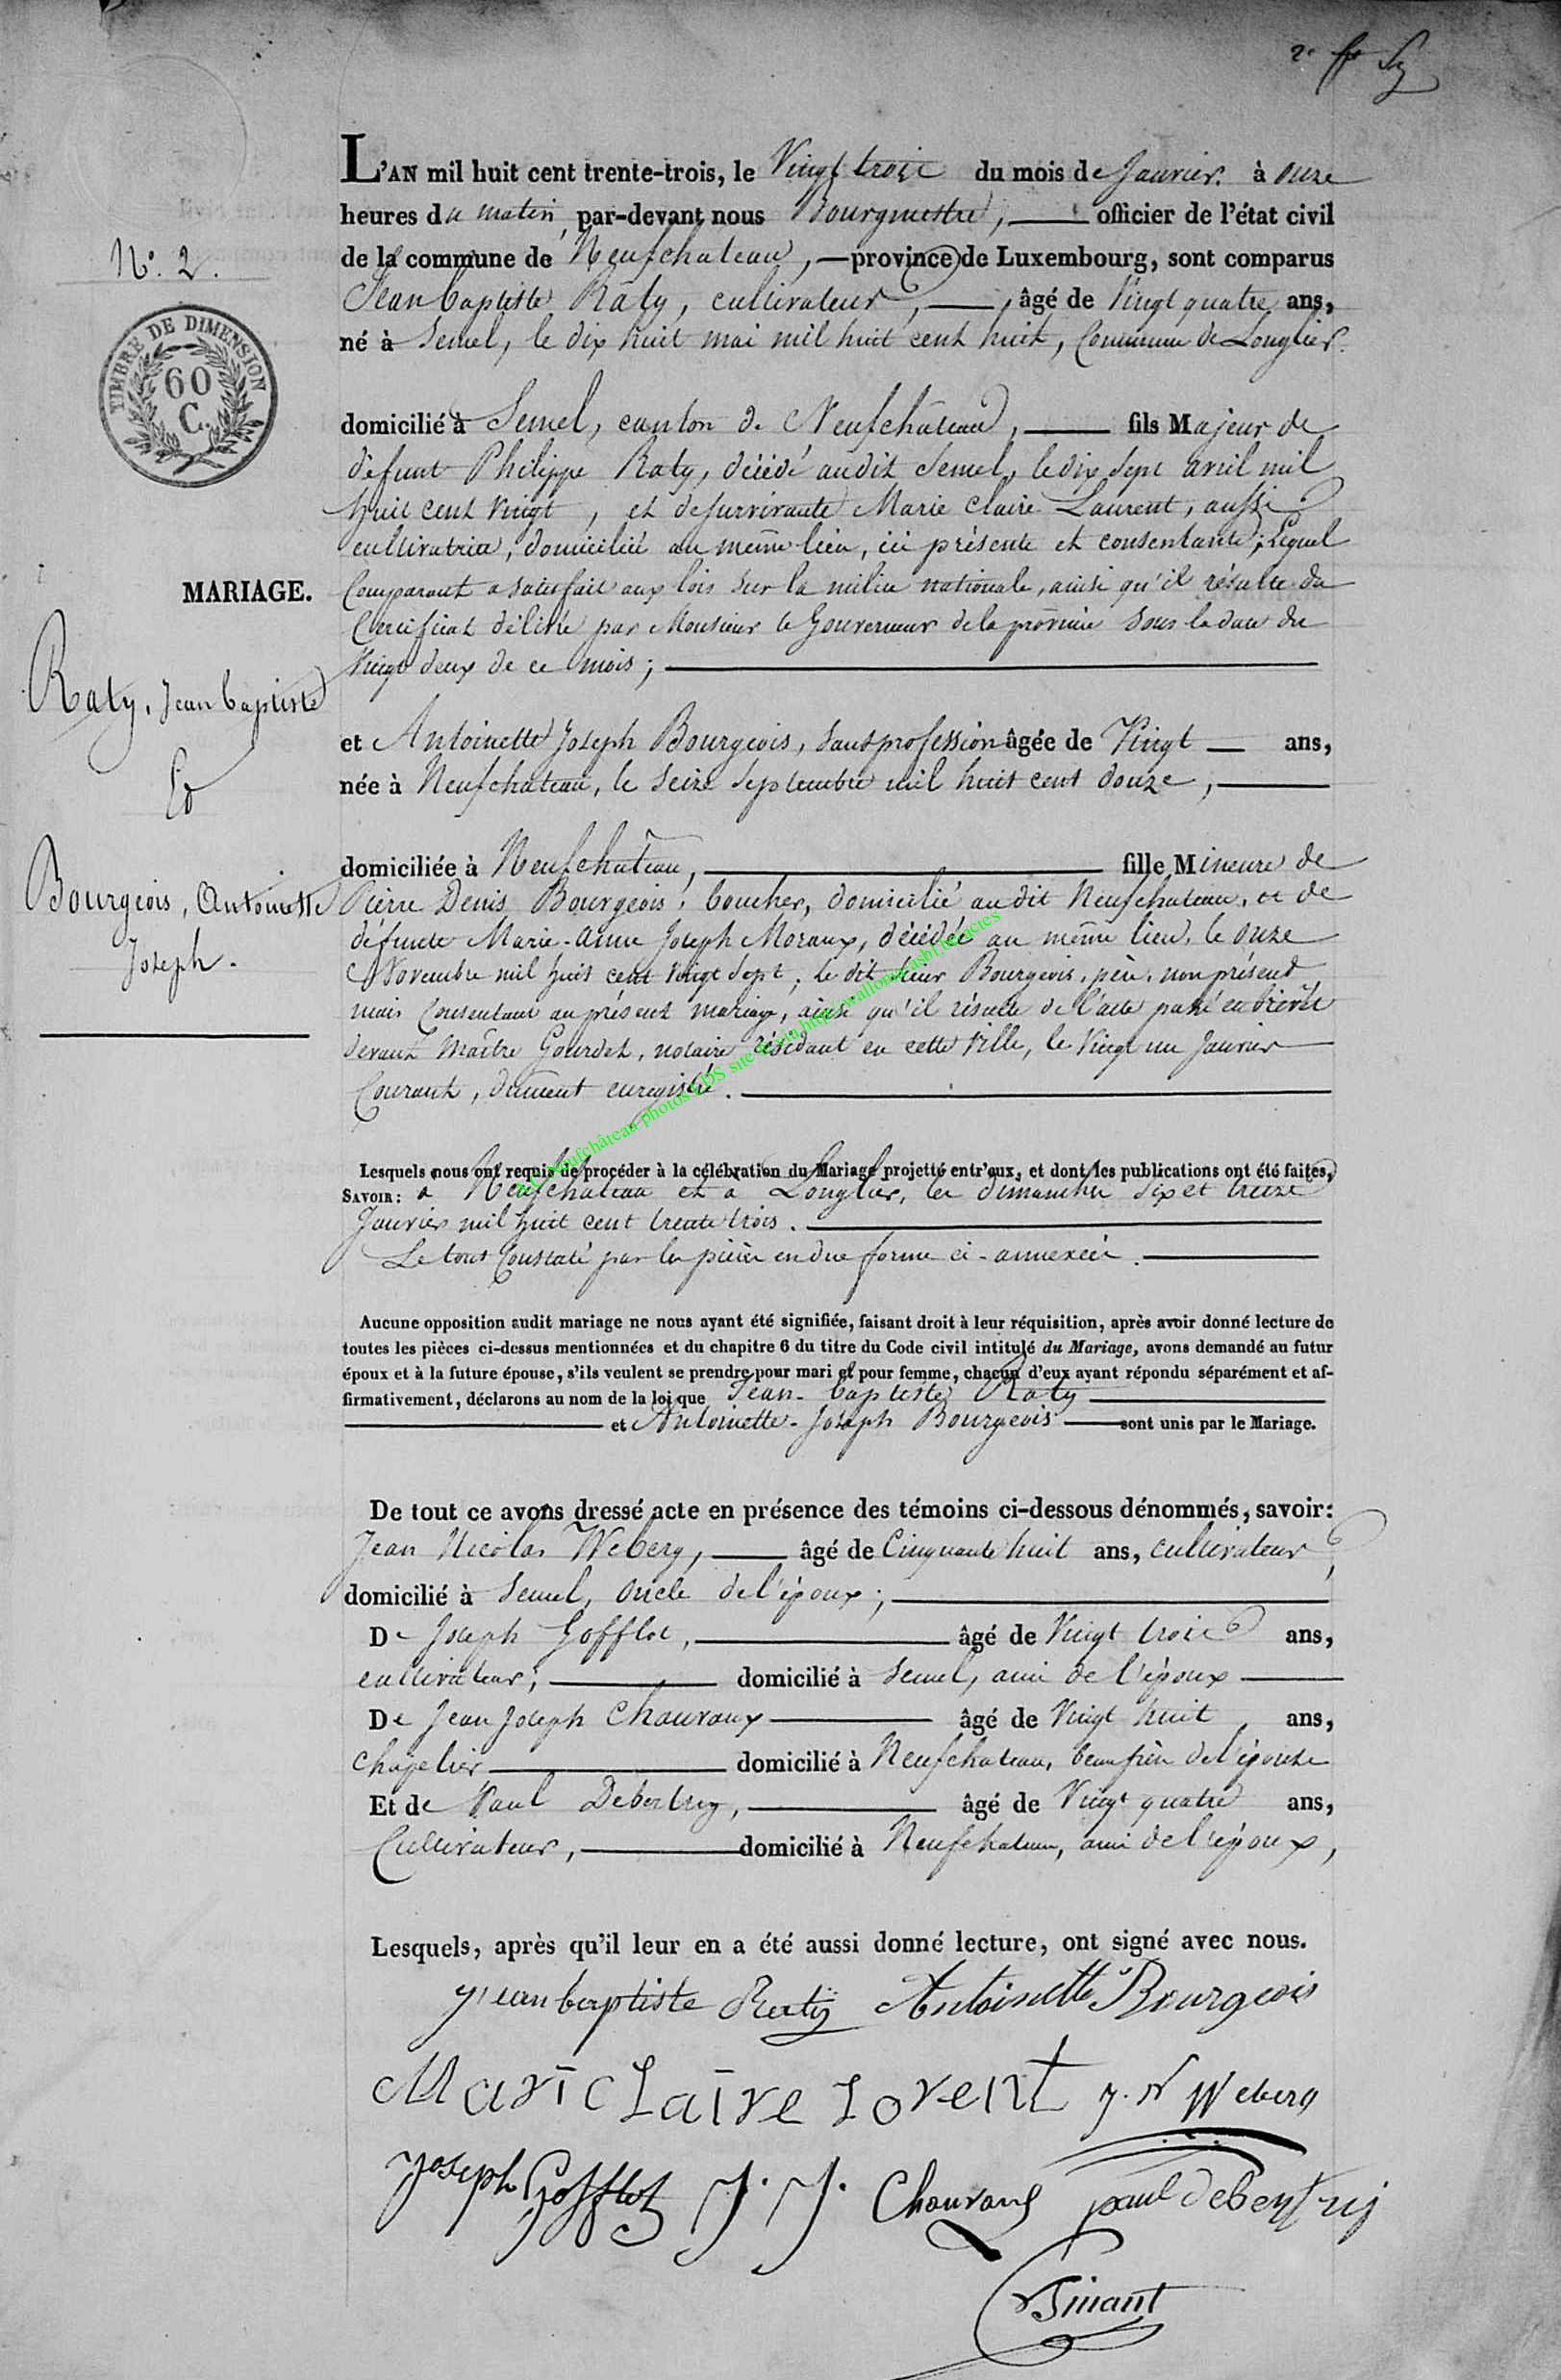 2e
L'AN mil huit cent trente-trois, le Vingt trois du mois de Janvier. à onze
heures du matin, par-devant nous Bourgmestre, officier de l'état civil
de la commune de Neufchateau, province de Luxembourg, sont comparus
Jean baptiste Raty, cultivateur, âgé de Vingt quatre ans,
né à Semel, le dix huit mai mil huit cent huit, Commune de Longlier.
N°. 2.
TIMBRE DE DIMENSION
60
C.
domicilié à Semel, canton de Neufchâteau, fils Majeur de
défunt Philippe Raty, décédé audit Semel, le dix sept avril mil
huit cent vingt, et de survivante Marie Claire Laurent, aussi
cultivatrice, domiciliée au même lieu, ici présente et consentante; Lequel
Comparant a satisfait aux lois sur la milice nationale, ainsi qu'il résulte du
Certificat délivré par Monsieur le Gouverneur de la province sous la date du
Vingt deux de ce mois;
MARIAGE.
Raty, Jean baptiste
Et
Bourgeois, Antoinette
Joseph.
et Antoinette Joseph Bourgeois, sans profession âgée de Vingt ans,
née à Neufchateau, le seize septembre mil huit cent douze,
domiciliée à Neufchâteau, fille Mineure de
Pierre Denis Bourgeois, boucher, domicilié audit Neufchateau, et de
défunte Marie-anne Joseph Moraux, décédée au même lieu, le onze
Novembre mil huit cent vingt sept; le dit sieur Bourgeois, père, non présent
mais Consentant au présent mariage, ainsi qu'il résulte de l'acte passé en brevet
devant Maître Gourdet, notaire résidant en cette Ville, le Vingt un Janvier
Courant, dûment enregistré.
Neufchâteau photos LDS site
Lesquels nous ont requis de procéder à la célébration du Mariage projetté entr'eux, et dont les publications ont été faites,
SAVOIR: à Neufchateau et à Longlier, les dimanches six et treize
Janvier mil huit cent trente trois.
Le tout Constaté par les pièces en due forme ci-annexées.
Aucune opposition audit mariage ne nous ayant été signifiée, faisant droit à leur réquisition, après avoir donné lecture de
toutes les pièces ci-dessus mentionnées et du chapitre 6 du titre du Code civil intitulé du Mariage, avons demandé au futur
époux et à la future épouse, s'ils veulent se prendre pour mari et pour femme, chacun d'eux ayant répondu séparément et af-
firmativement, déclarons au nom de la loi que Jean-baptiste Raty
et Antoinette-Joseph Bourgeois sont unis par le Mariage.
De tout ce avons dressé acte en présence des témoins ci-dessous dénommés, savoir:
Jean Nicolas Weberg, âgé de Cinquante huit ans, cultivateur,
domicilié à Semel, oncle de l'époux;
De Joseph Gofflot, âgé de Vingt trois ans,
cultivateur, domicilié à Semel, ami de l'époux
De Jean Joseph Chauvaux âgé de Vingt huit ans,
Chapelier domicilié à Neufchateau, beau frère de l'épouse
Et de Paul Debertry, âgé de Vingt quatre ans,
Cultivateur, domicilié à Neufchateau, ami de l'époux,
Lesquels, après qu'il leur en a été aussi donné lecture, ont signé avec nous.
jean baptiste Raty Antoinette Bourgeois
Mari claire Lorent j. N Weberg
Joseph Gofflot J. J. Chauvaux paul